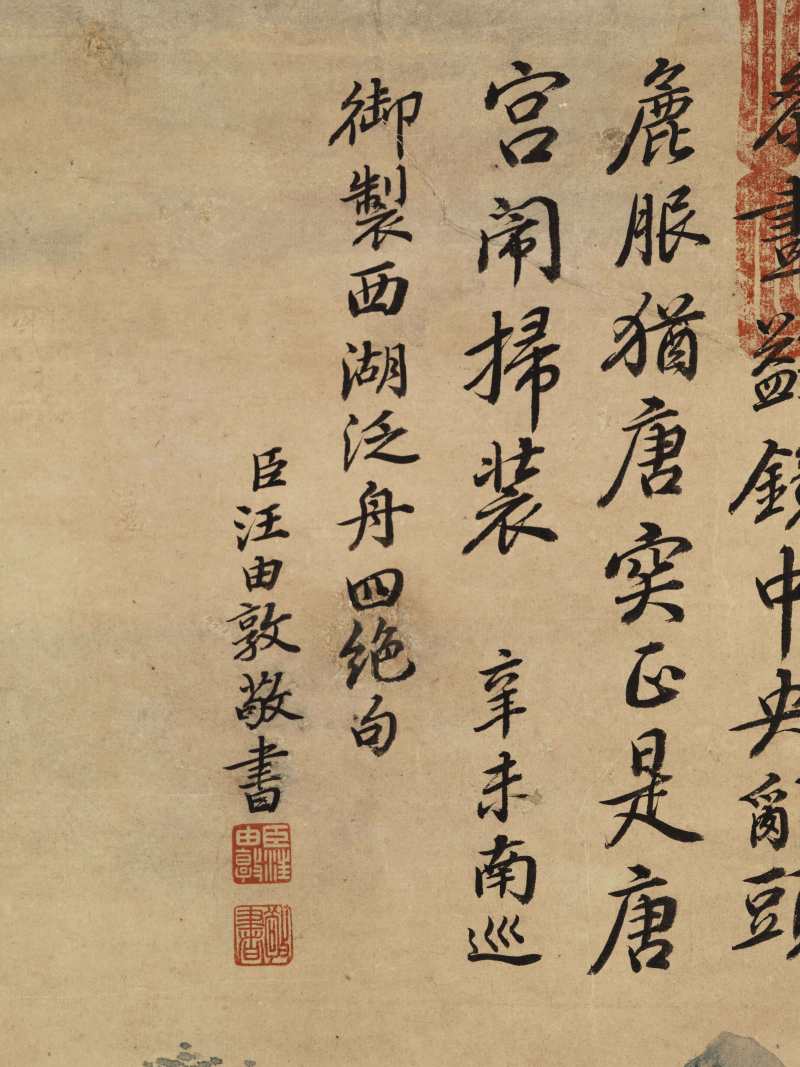 畫鏡中央頭
麁服猶唐突正是唐
宮鬧掃裝 辛未南巡
御製西湖泛舟四絶句
臣汪由敦敬書
臣汪由敦
敬書